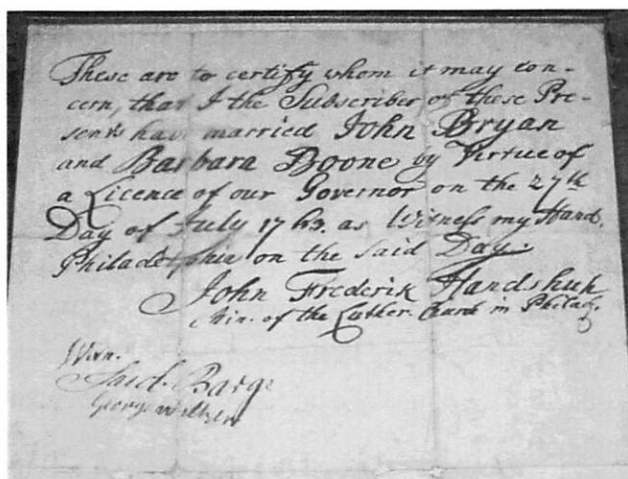 These are to certify whom it may con-
cern, that I the Subscriber of these Pre-
sents have married John Bryan
and Barbara Boone by Virtue of
a Licence of our Governor on the 27th
Day of July 1763. as Witness my Hand.
Philadelphia on the said Day.
John Frederik Handshuh
Min. of the Luther. Church in Philad.
Jacob Barge
George